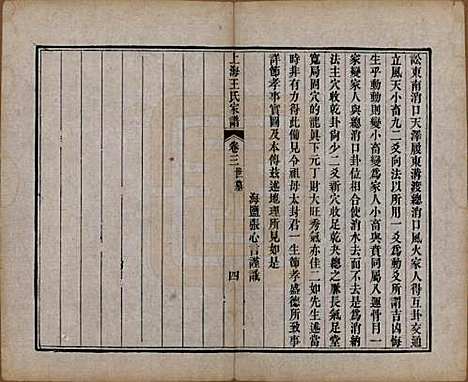 訟東南消口天澤履東溝渡總消口風火家人得互卦交通
立風天小畜九二爻向法以所用一爻爲動爻所謂吉凶悔
生乎動動則變小畜變爲家人小畜與賁同屬八運骨月一
家變家人與總消口卦位相合使消水去而不去是爲消納
法主穴收乾卦向少二爻新穴收足乾夬總之脈長氣足堂
寬局固穴的龍與下元丁財大旺秀氣亦佳二如先生述當
時非有力得此備見令祖母太封君一生節孝盛德所致事
詳節孝事實圖及本傳茲述地理所見如是
海鹽張心言謹識
上海王氏家譜 卷三世墓 四